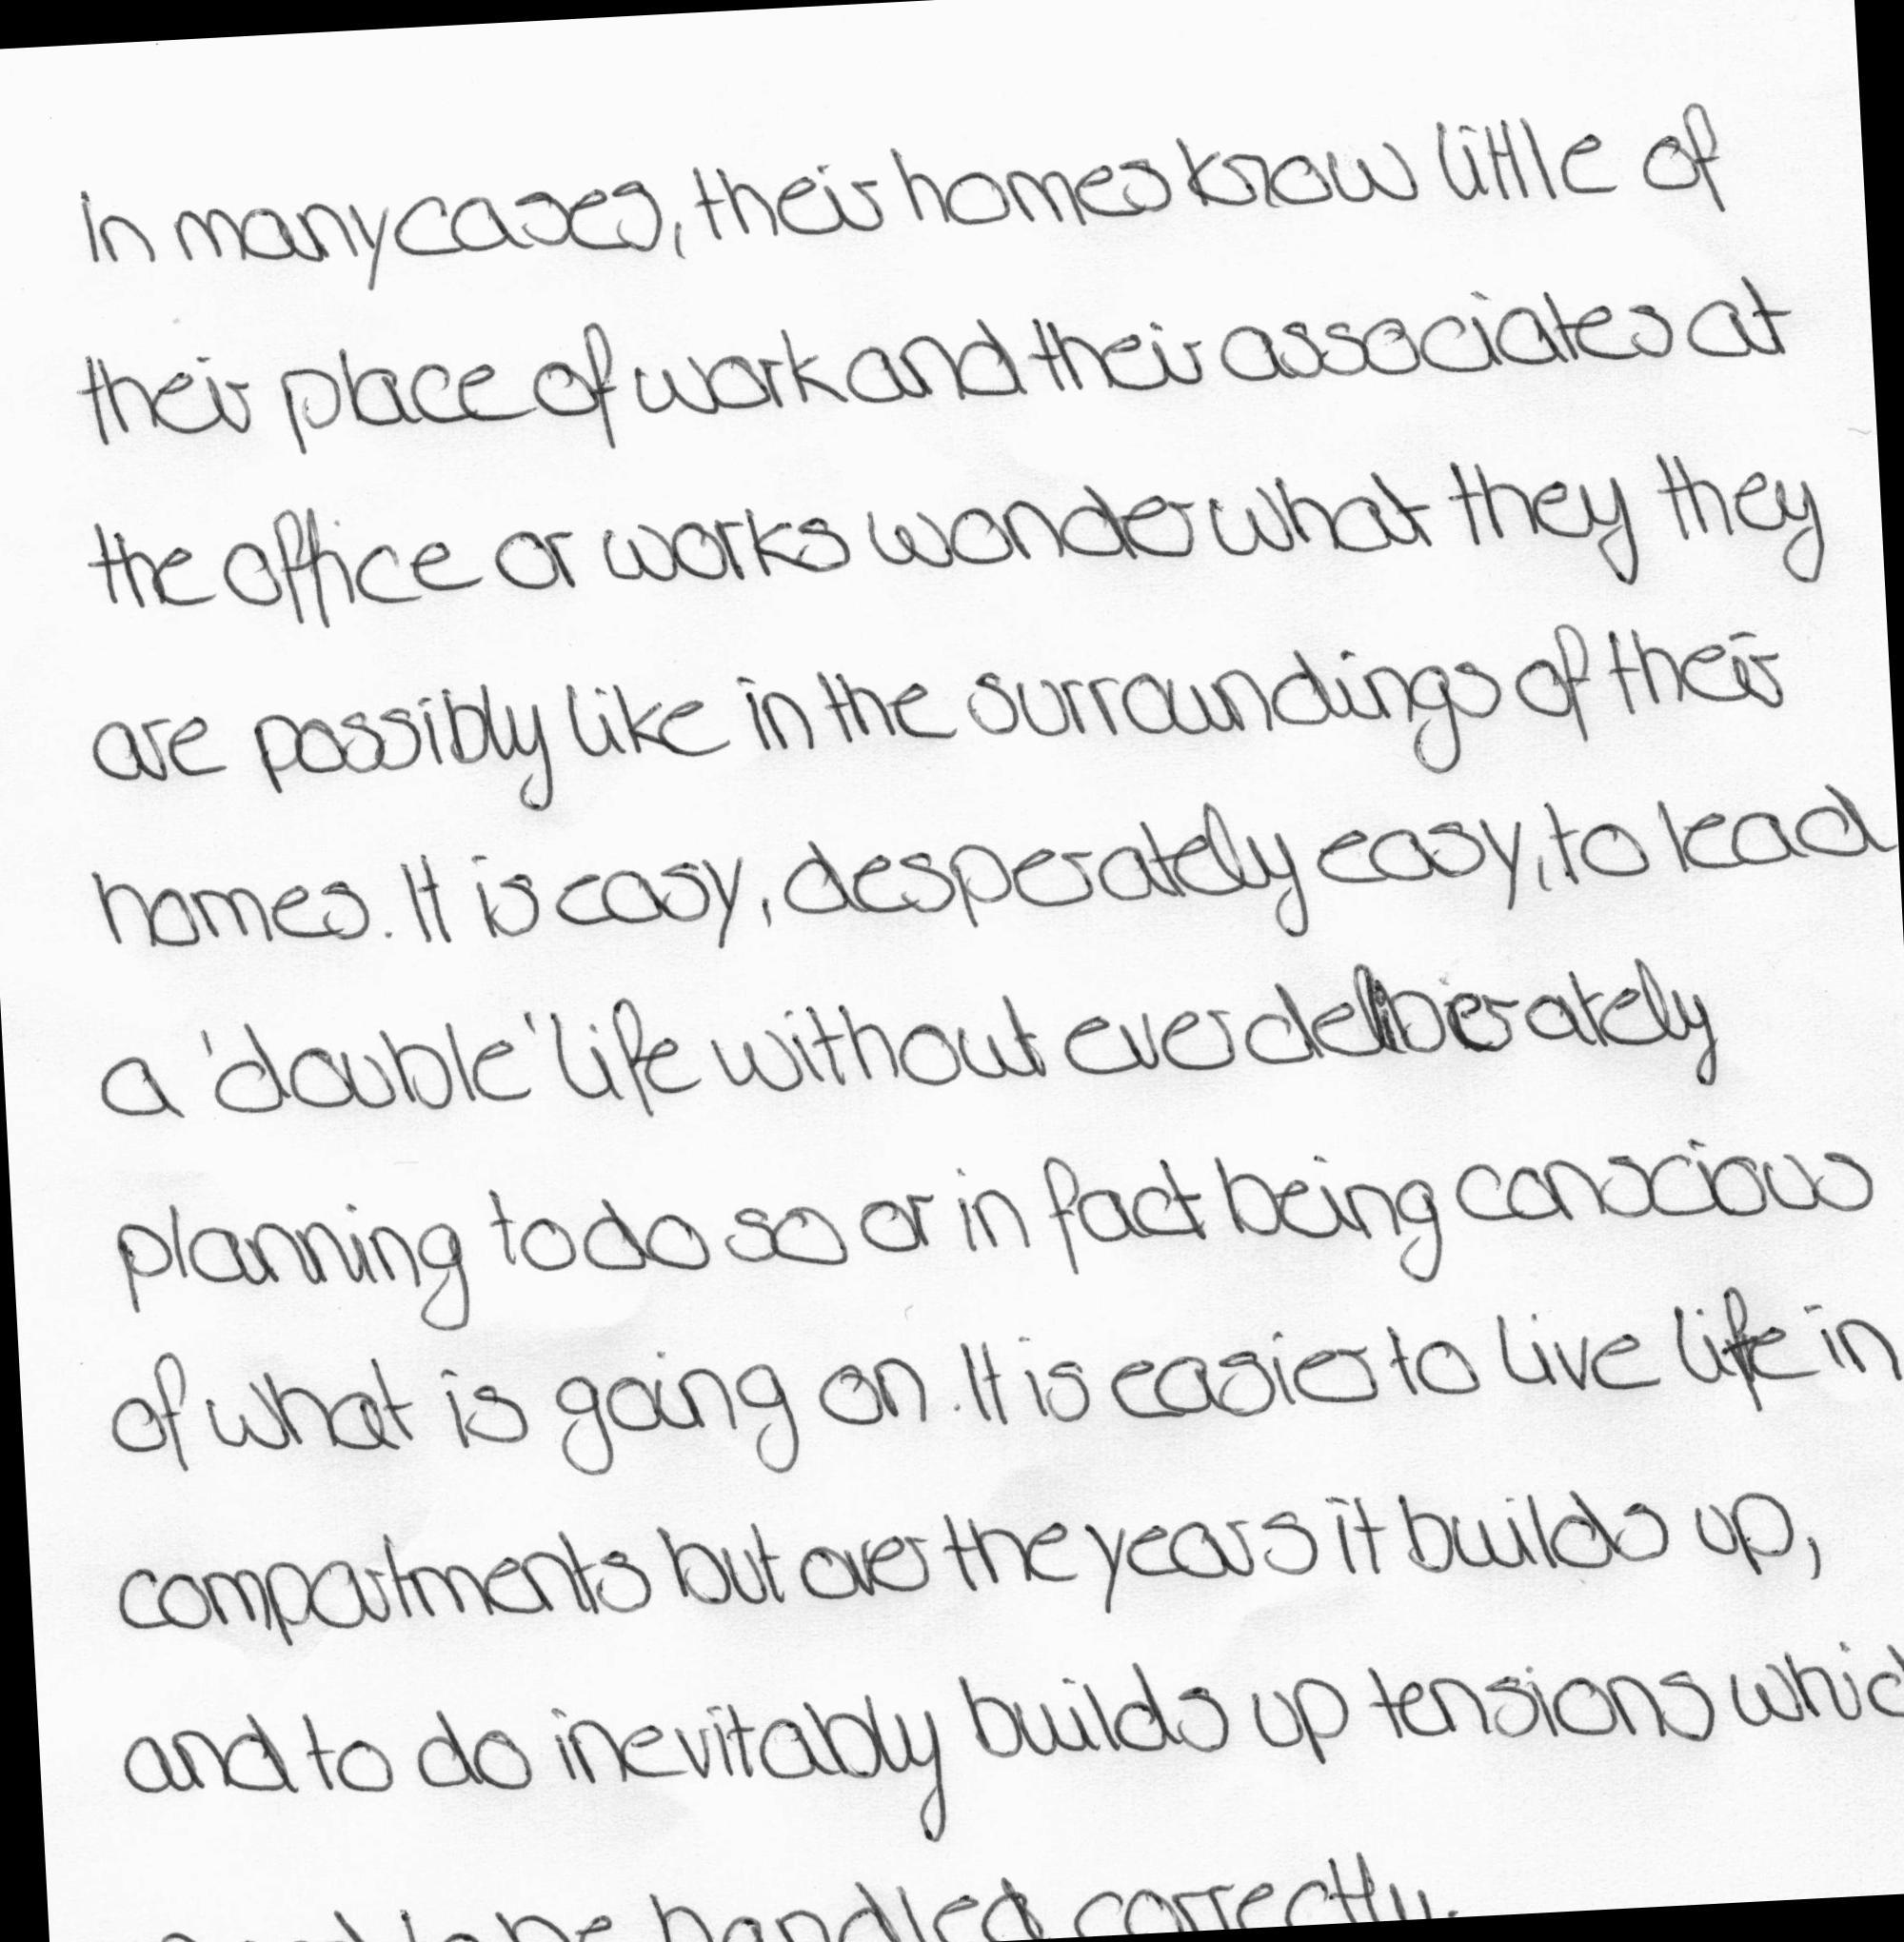 In many cases, their homes know little of
their place of work and their associates at
the office or works wonder what they they
are possibly like in the surroundings of their
homes. It is easy, desperately easy, to lead
a 'double' life without ever deliberately
planning to do so or in fact being conscious
of what is going on. It is easier to live life in
compartments but over the years it builds up,
and to do inevitably builds up tensions whic
to be handled correctly.